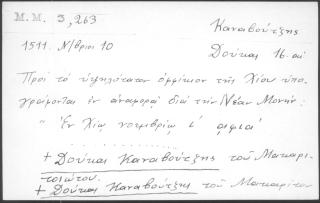 M.M. 3,263
Καναβούτζης
1511. Ν/βριοι 10
Δούκας 16. αι
Πρὸς τὸ ὑψηλότατον ὀφφίκιον τῆς Χίου ὑπο-
γράφονται ἐν ἀναφορᾷ διὰ τὴν Νέαν Μονήν:
" Ἐν Χίῳ νοεμβρίῳ ι' αφια'
+ Δούκας Καναβούτζης τοῦ Μακαρι-
τοιώτου.
+ Δούκας Καναβούτζης τοῦ Μακαρίτου